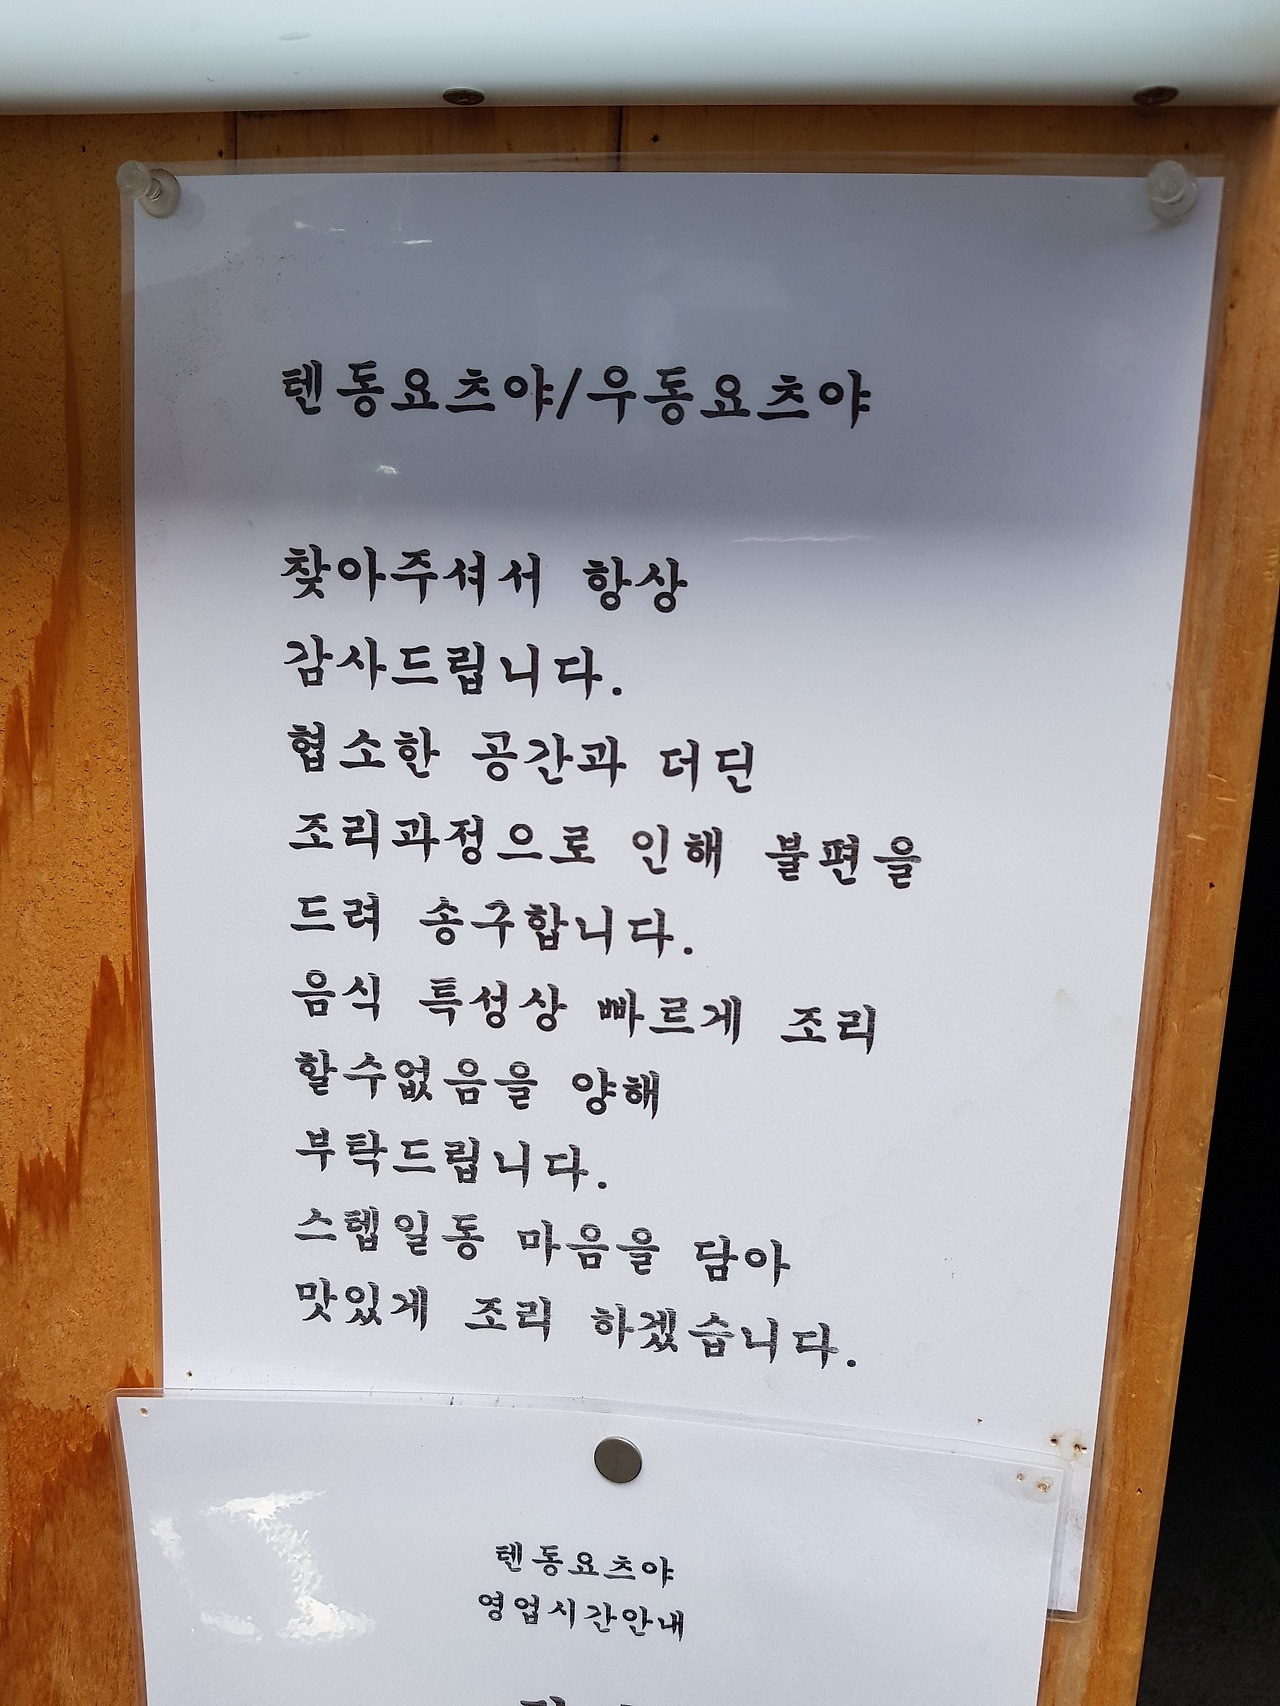 텐동요츠야/우동요츠야
찾아주셔서 항상
감사드립니다.
협소한 공간과 더딘
조리과정으로 인해 불편을
드려 송구합니다.
음식 특성상 빠르게 조리
할수없음을 양해
부탁드립니다.
스텝일동 마음을 담아
맛있게 조리 하겠습니다.
텐동요츠야
영업시간안내